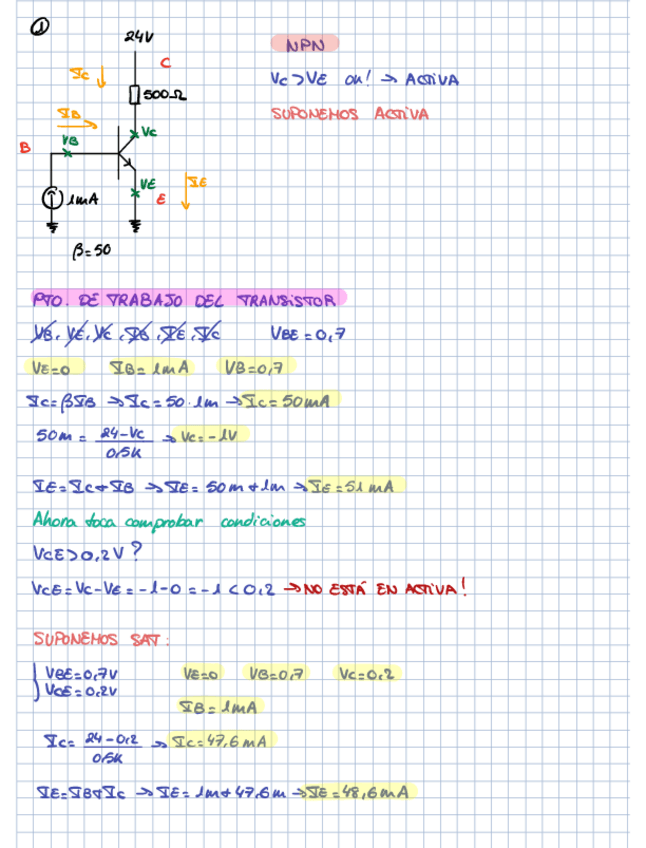 ①
24V
NPN
C
Ic
Vc > VE ok! → ACTIVA
500Ω
SUPONEMOS ACTIVA
IB
VB
Vc
B
VE
IE
E
1mA
β=50
PTO. DE TRABAJO DEL TRANSISTOR
VB, VE, VC, IB, IE, IC VBE = 0,7
VE=0 IB= 1mA VB=0,7
Ic= βIB → Ic= 50·1m → Ic= 50mA
50m = (24-Vc)/0,5k → Vc= -1V
IE= Ic+IB → IE= 50m+1m → IE= 51 mA
Ahora toca comprobar condiciones
VCE>0,2V?
VCE= Vc-VE = -1-0 = -1 < 0,2 → NO ESTÁ EN ACTIVA!
SUPONEMOS SAT:
VBE=0,7V VE=0 VB=0,7 Vc=0,2
VCE=0,2V
IB= 1mA
Ic= (24-0,2)/0,5K → Ic=47,6 mA
IE=IB+Ic → IE= 1m+47,6m → IE=48,6mA